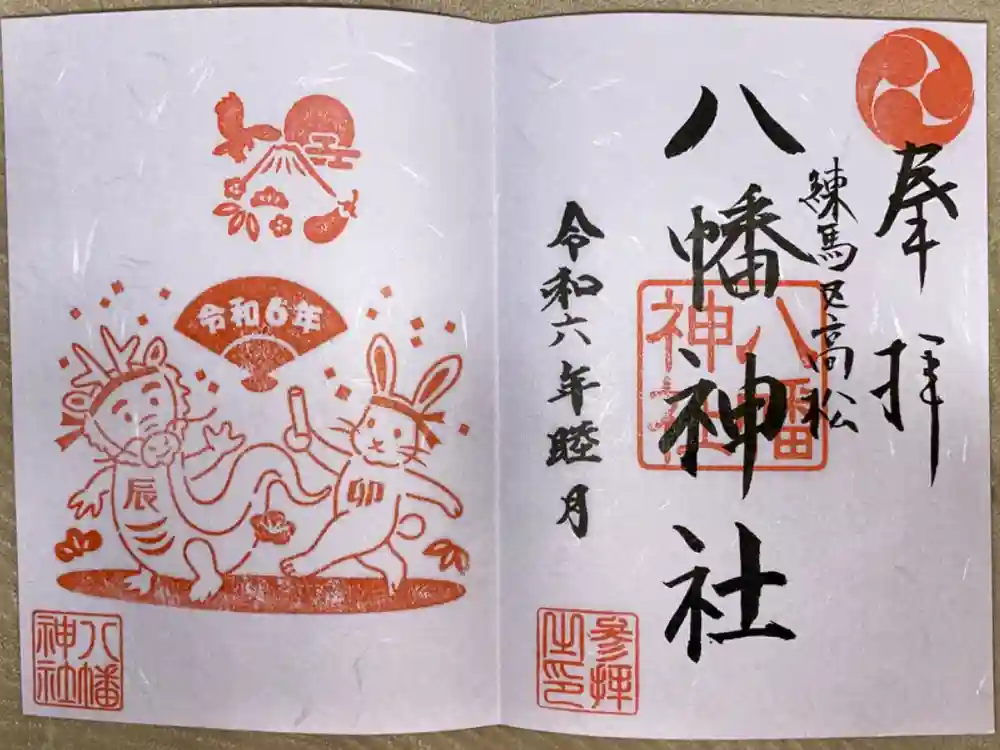 奉拝
練馬区高松
八幡神社
八幡
神社
令和六年睦月
参拝
之印
令和6年
辰
卯
八幡
神社